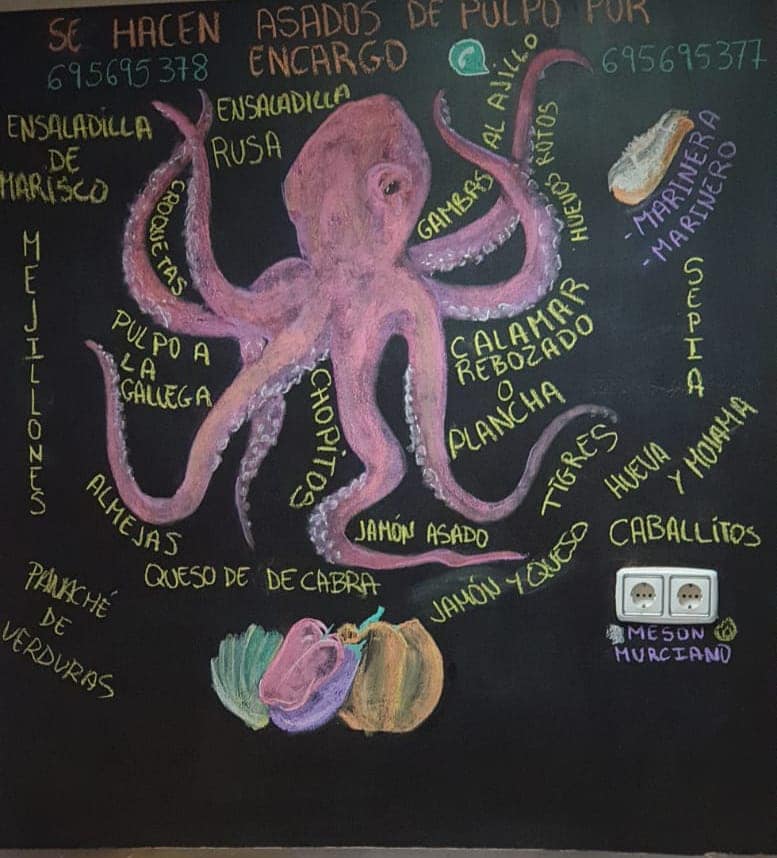 SE HACEN ASADOS DE PULPO POR
ENCARGO
695695378
695695377
ENSALADILLA
DE
MARISCO
ENSALADILLA
RUSA
CROQUETAS
GAMBAS AL AJILLO
HUEVOS ROTOS
- MARINERA
- MARINERO
MEJILLONES
PULPO A
LA
GALLEGA
CHOPITOS
CALAMAR
REBOZADO
O
PLANCHA
SEPIA
ALMEJAS
JAMÓN ASADO
TIGRES
HUEVA
Y MOJAMA
QUESO DE DE CABRA
JAMÓN Y QUESO
CABALLITOS
PANACHÉ
DE
VERDURAS
MESON
MURCIANO